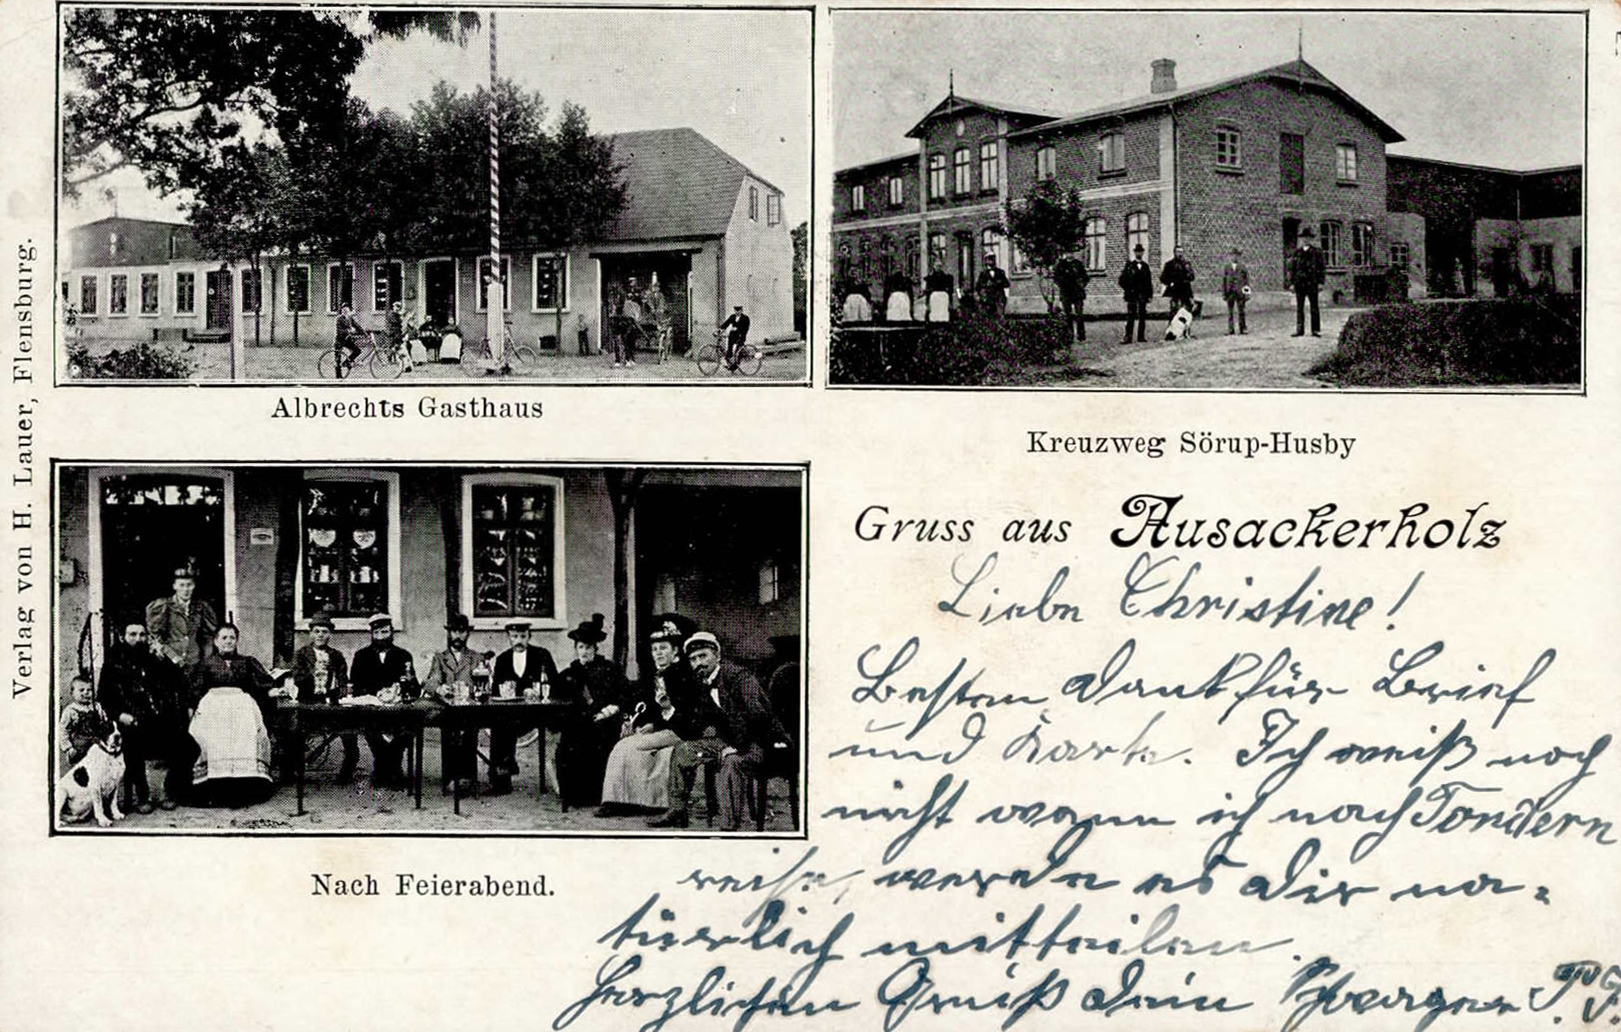 Albrechts Gasthaus
Kreuzweg Sörup-Husby
Verlag von H. Lauer, Flensburg.
Nach Feierabend.
Gruss aus Ausackerholz
Liebe Christine!
Besten Dank für Brief
und Karte. Ich weiß noch
nicht wann ich nach Tondern
reise, werde es Dir na-
türlich mitteilen.
Herzlichen Gruß Dein Schwager